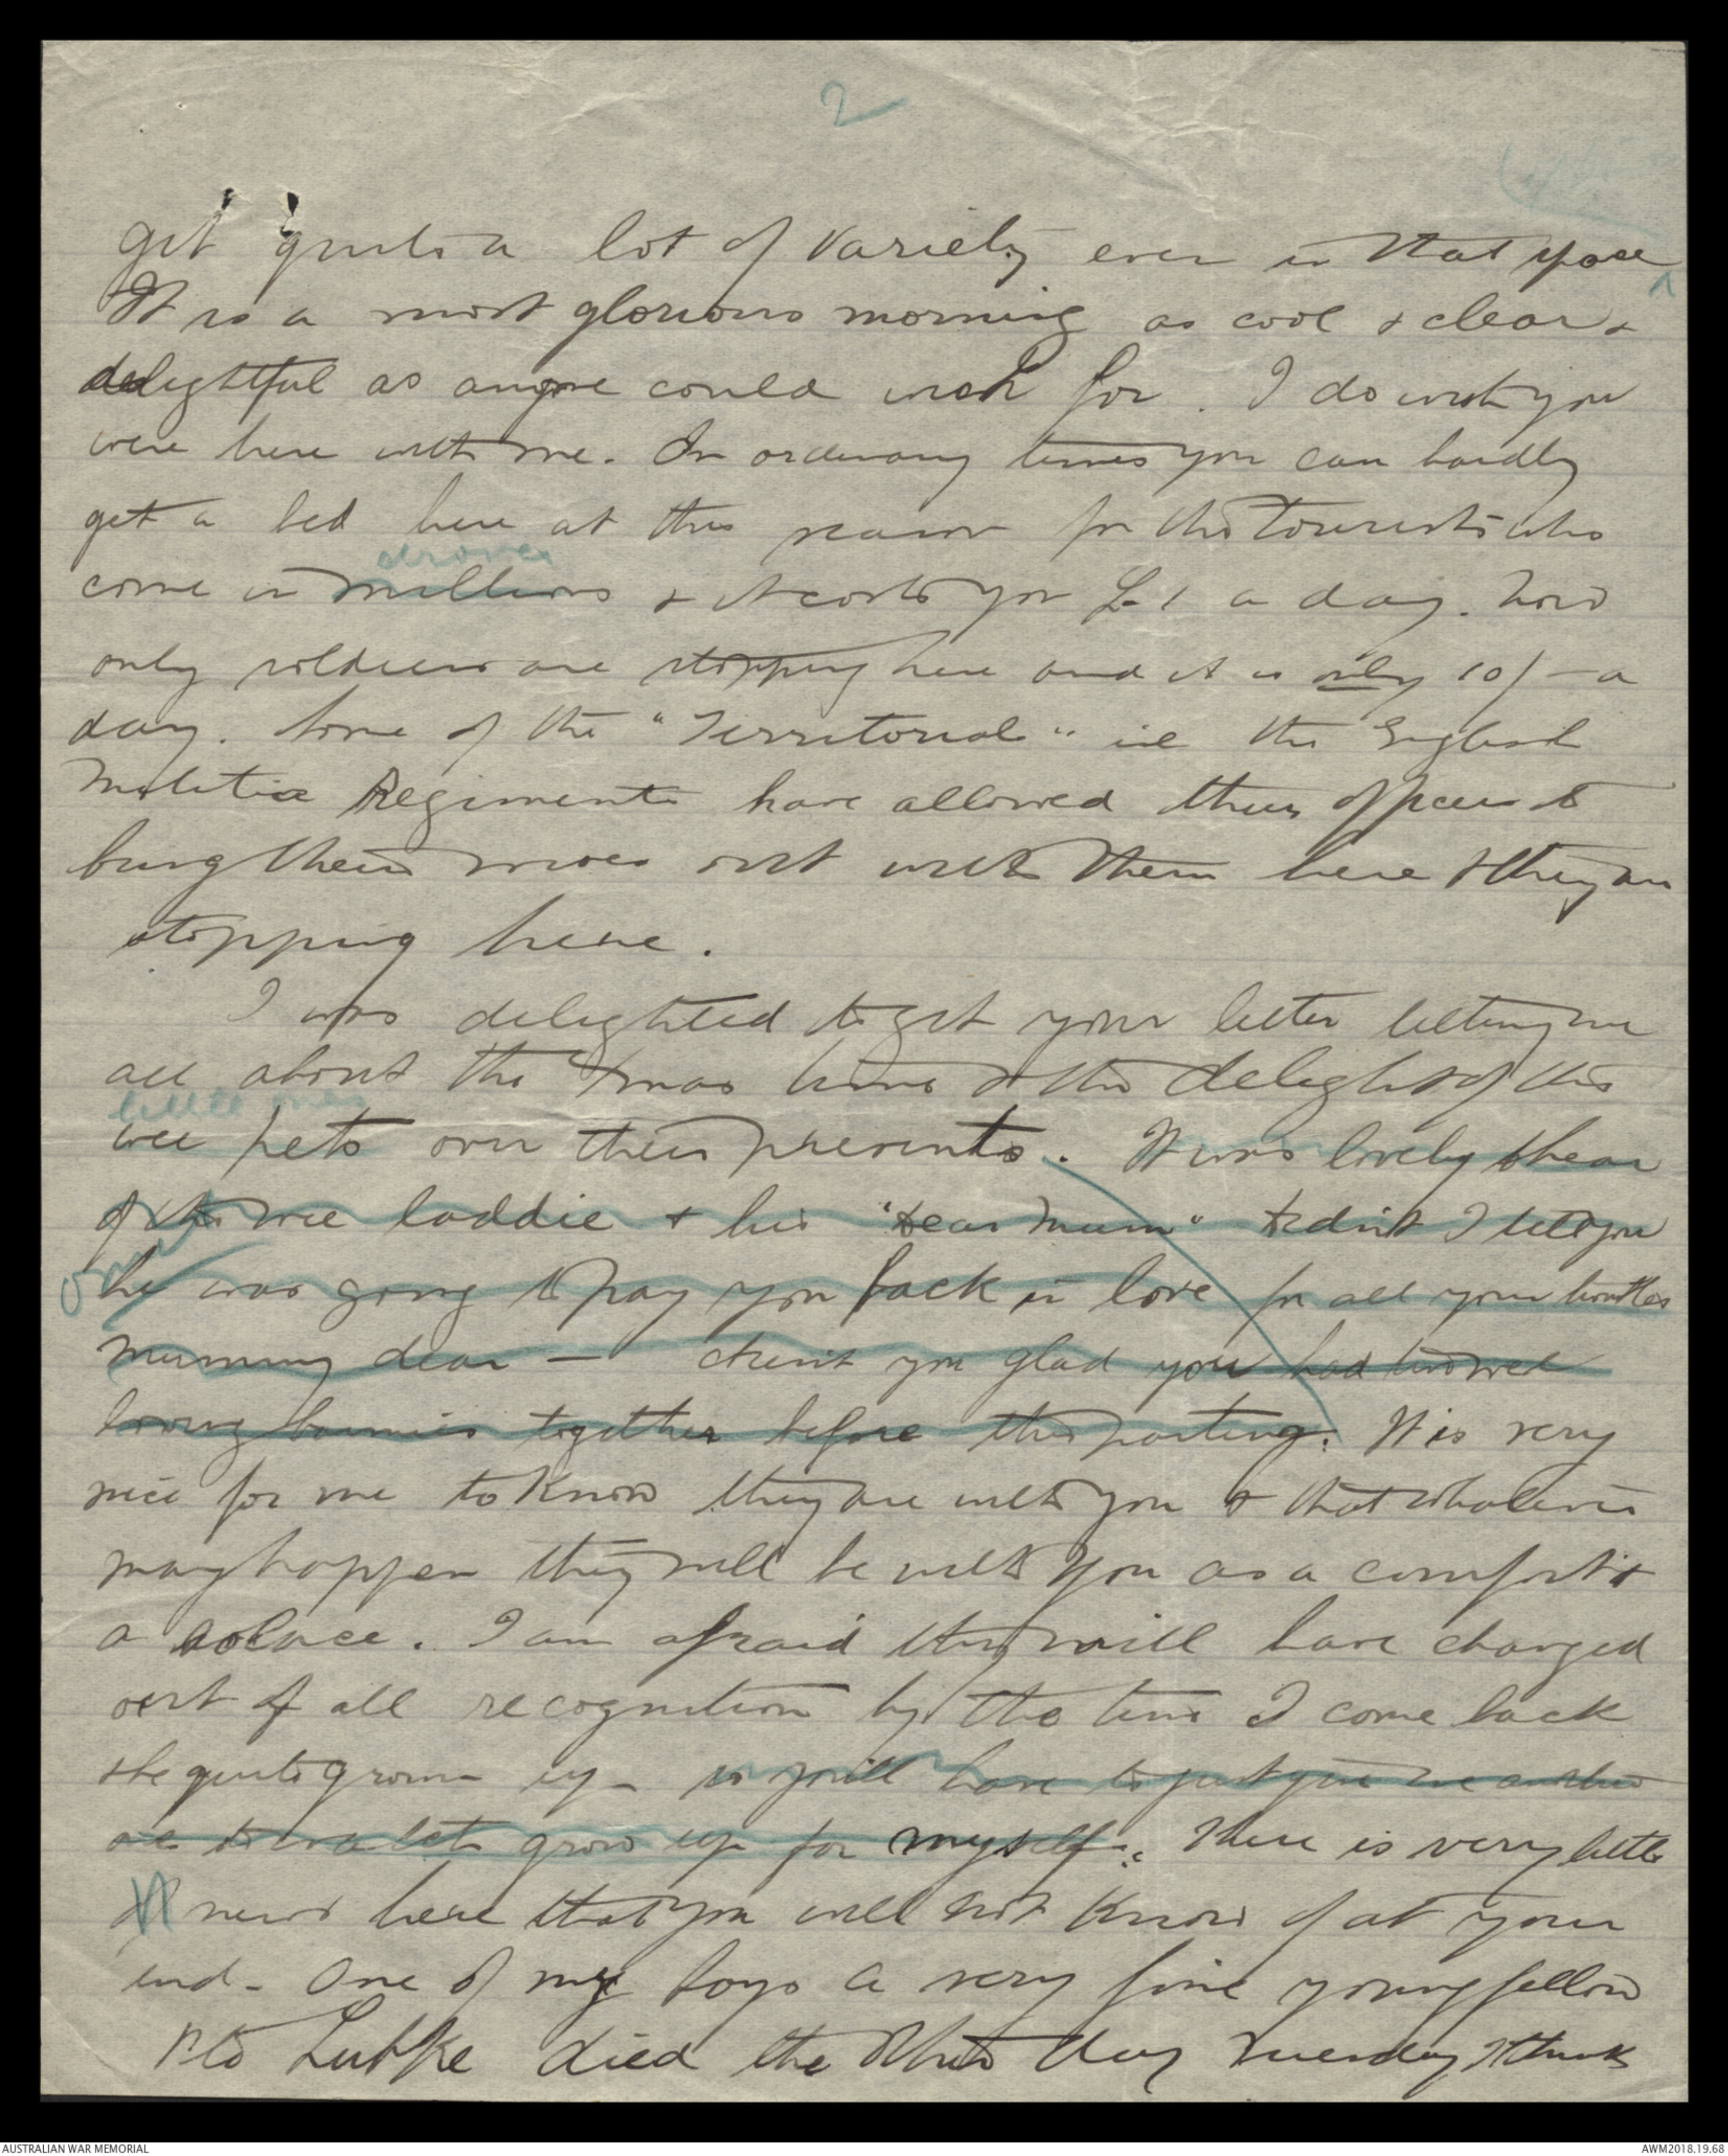 2
get quite a lot of variety even in that space
It is a most glorious morning as cool & clear &
delightful as anyone could wish for. I do wish you
were here with me. In ordinary times you can hardly
get a bed here at this season for the tourists who
droves
come in millions & it costs you £1 a day. Now
only soldiers are stopping here and it is only 10/- a
day. Some of the "Territorial" ie the English
Militia Regiments have allowed their officers to
bring their wives out with them here & they are
stopping here.
I was delighted to get your letter telling me
all about the Xmas time & the delight of the
little ones
wee pets over their presents. It was lovely to hear
of the wee laddie & his "dear Mum" & didn't I tell you
he was going to pay you back in love for all your troubles
Mummy dear - aren't you glad you had two wee
loving bonnies together before the parting. It is very
nice for me to know they are with you & that whatever
may happen they will be with you as a comfort &
a solace. I am afraid they will have changed
out of all recognition by the time I come back
& be quite grown up - so you'll have to just give me another
one to watch grow up for myself. There is very little
news here that you will not know of at your
end - One of my boys a very fine young fellow
Pte Lubke died the other day Tuesday I think
AUSTRALIAN WAR MEMORIAL
AWM2018.19.68